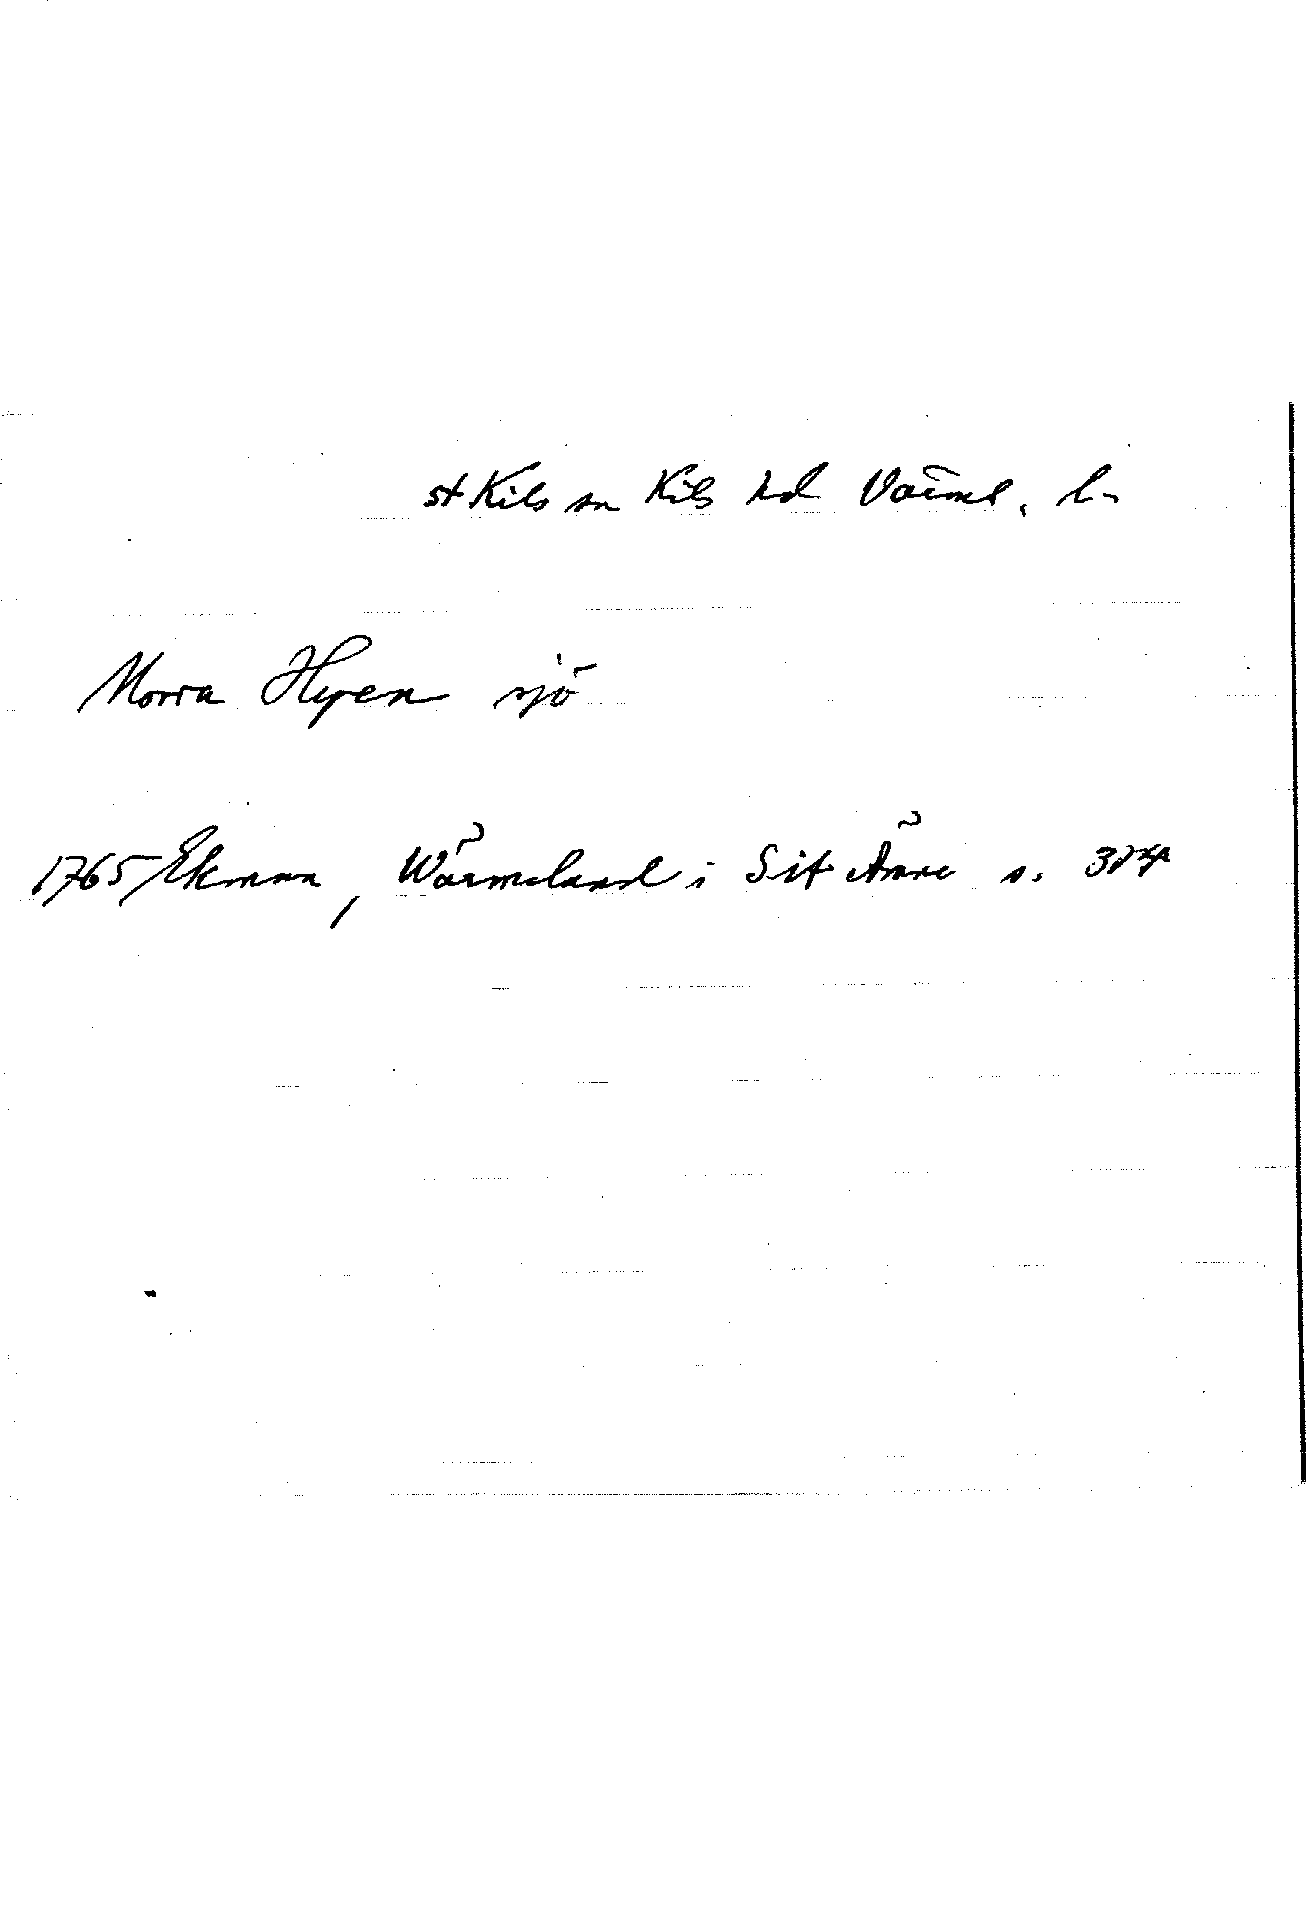 st Kils sn Kils hd Värml. l.
Norra Hyen sjö
1765 Ekman, Wärmeland i Sit Ämne s. 374